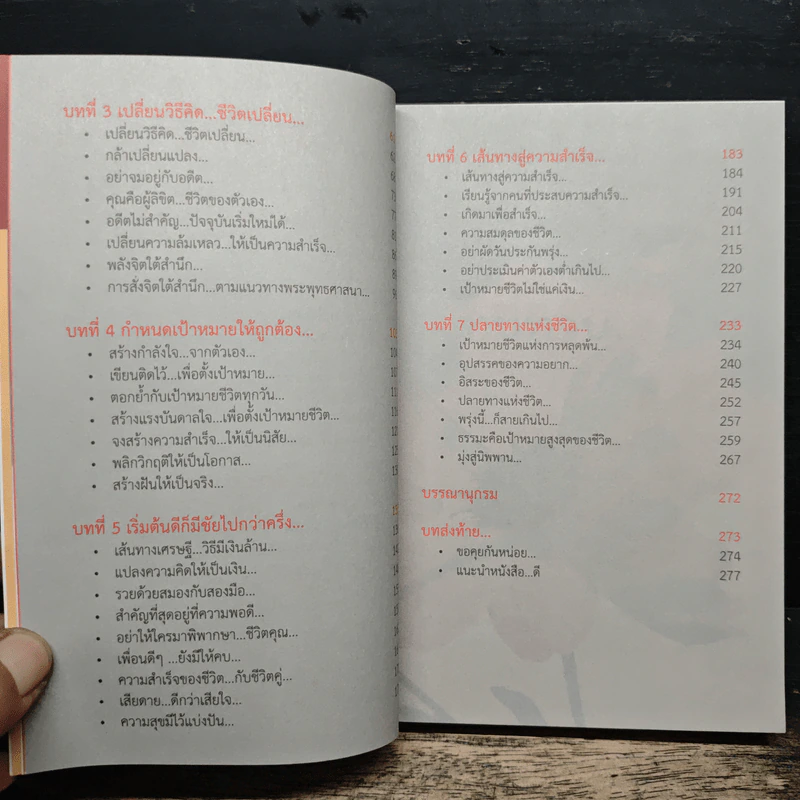 บทที่ 3 เปลี่ยนวิธีคิด...ชีวิตเปลี่ยน...
• เปลี่ยนวิธีคิด...ชีวิตเปลี่ยน...
• กล้าเปลี่ยนแปลง...
• อย่าจมอยู่กับอดีต...
• คุณคือผู้ลิขิต...ชีวิตของตัวเอง...
• อดีตไม่สำคัญ...ปัจจุบันเริ่มใหม่ได้...
• เปลี่ยนความล้มเหลว...ให้เป็นความสำเร็จ...
• พลังจิตใต้สำนึก...
• การสั่งจิตใต้สำนึก...ตามแนวทางพระพุทธศาสนา...
บทที่ 4 กำหนดเป้าหมายให้ถูกต้อง...
• สร้างกำลังใจ...จากตัวเอง...
• เขียนติดไว้...เพื่อตั้งเป้าหมาย...
• ตอกย้ำกับเป้าหมายชีวิตทุกวัน...
• สร้างแรงบันดาลใจ...เพื่อตั้งเป้าหมายชีวิต...
• จงสร้างความสำเร็จ...ให้เป็นนิสัย...
• พลิกวิกฤติให้เป็นโอกาส...
• สร้างฝันให้เป็นจริง...
บทที่ 5 เริ่มต้นดีก็มีชัยไปกว่าครึ่ง...
• เส้นทางเศรษฐี...วิธีมีเงินล้าน...
• แปลงความคิดให้เป็นเงิน...
• รวยด้วยสมองกับสองมือ...
• สำคัญที่สุดอยู่ที่ความพอดี...
• อย่าให้ใครมาพิพากษา...ชีวิตคุณ...
• เพื่อนดีๆ ...ยังมีให้คบ...
• ความสำเร็จของชีวิต...กับชีวิตคู่...
• เสียดาย...ดีกว่าเสียใจ...
• ความสุขมีไว้แบ่งปัน...
บทที่ 6 เส้นทางสู่ความสำเร็จ... 183
• เส้นทางสู่ความสำเร็จ... 184
• เรียนรู้จากคนที่ประสบความสำเร็จ... 191
• เกิดมาเพื่อสำเร็จ... 204
• ความสมดุลของชีวิต... 211
• อย่าผัดวันประกันพรุ่ง... 215
• อย่าประเมินค่าตัวเองต่ำเกินไป... 220
• เป้าหมายชีวิตไม่ใช่แค่เงิน... 227
บทที่ 7 ปลายทางแห่งชีวิต... 233
• เป้าหมายชีวิตแห่งการหลุดพ้น... 234
• อุปสรรคของความอยาก... 240
• อิสระของชีวิต... 245
• ปลายทางแห่งชีวิต... 252
• พรุ่งนี้...ก็สายเกินไป... 257
• ธรรมะคือเป้าหมายสูงสุดของชีวิต... 259
• มุ่งสู่นิพพาน... 267
บรรณานุกรม 272
บทส่งท้าย... 273
• ขอคุยกันหน่อย... 274
• แนะนำหนังสือ...ดี 277